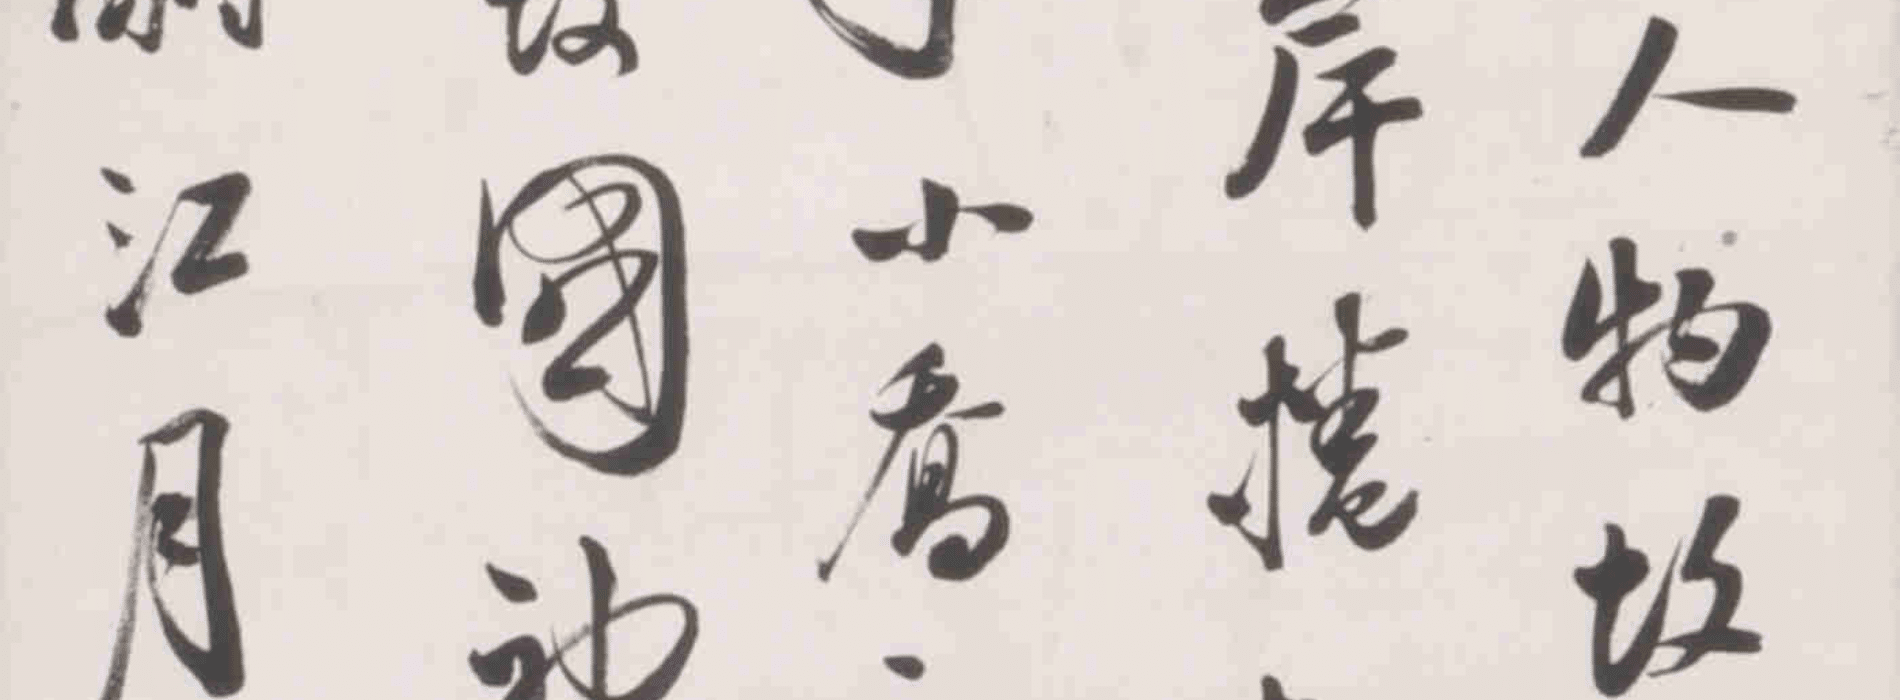 人物故
岸捲
小喬
故國神
江月